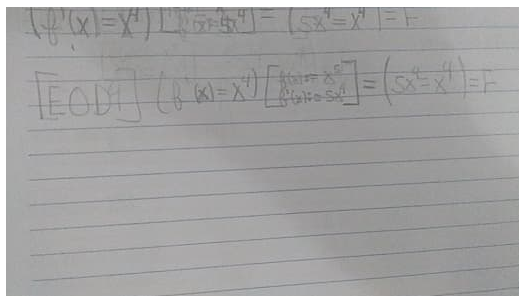 (f'(x)=x⁴) = (5x⁴=x⁴)=F
[EOD4] (f'(x)=x⁴) [f(x):=x⁵
f'(x):=5x⁴] = (5x⁴=x⁴)=F